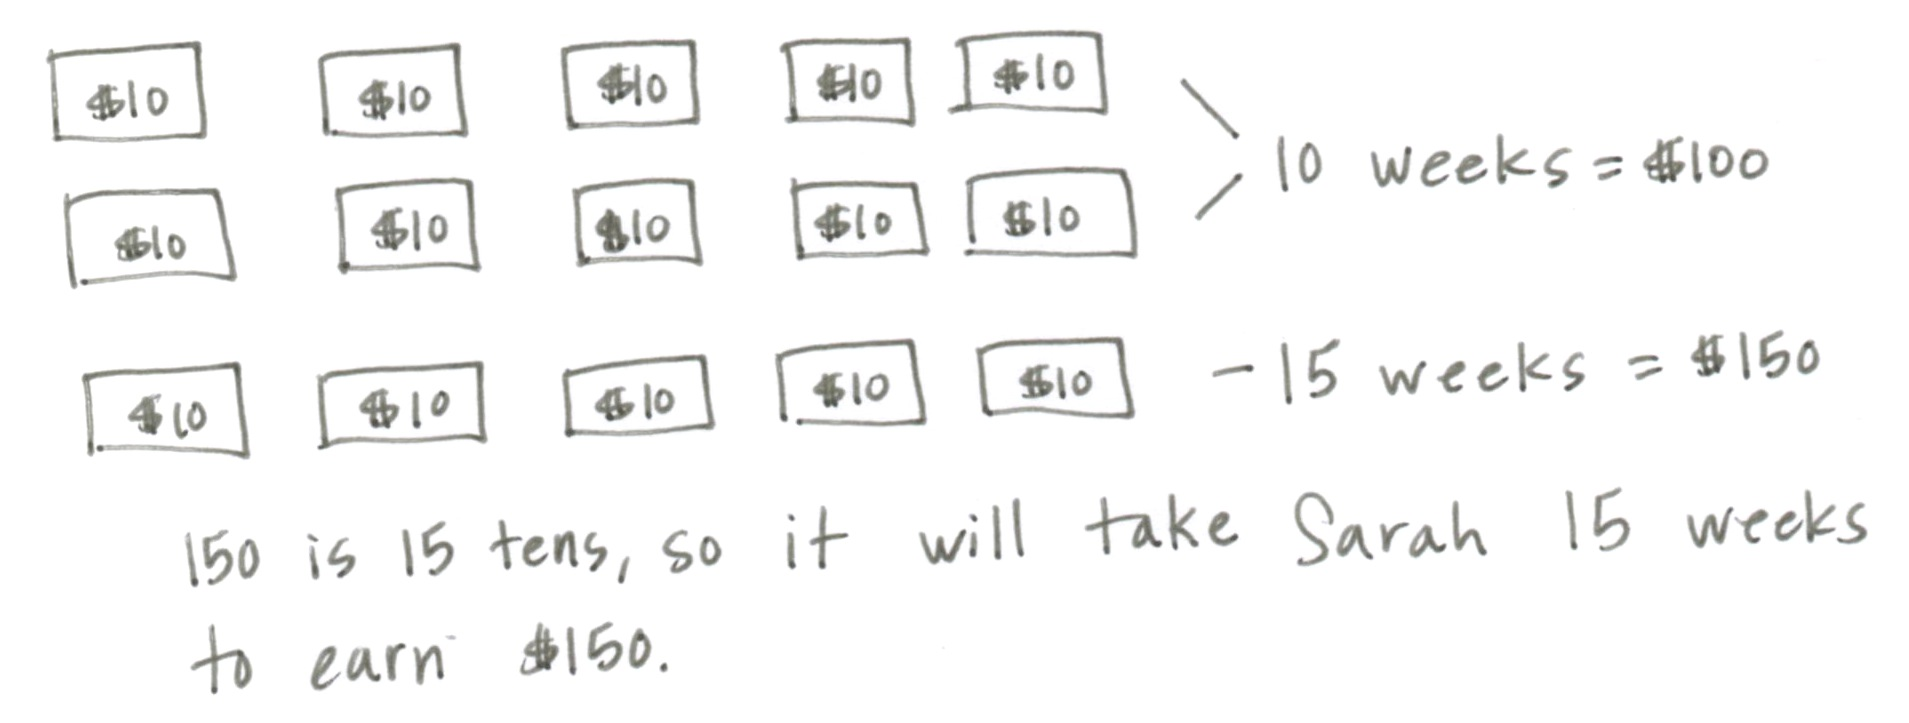 $10 $10 $10 $10 $10
10 weeks = $100
$10 $10 $10 $10 $10
$10 $10 $10 $10 $10 - 15 weeks = $150
150 is 15 tens, so it will take Sarah 15 weeks
to earn $150.